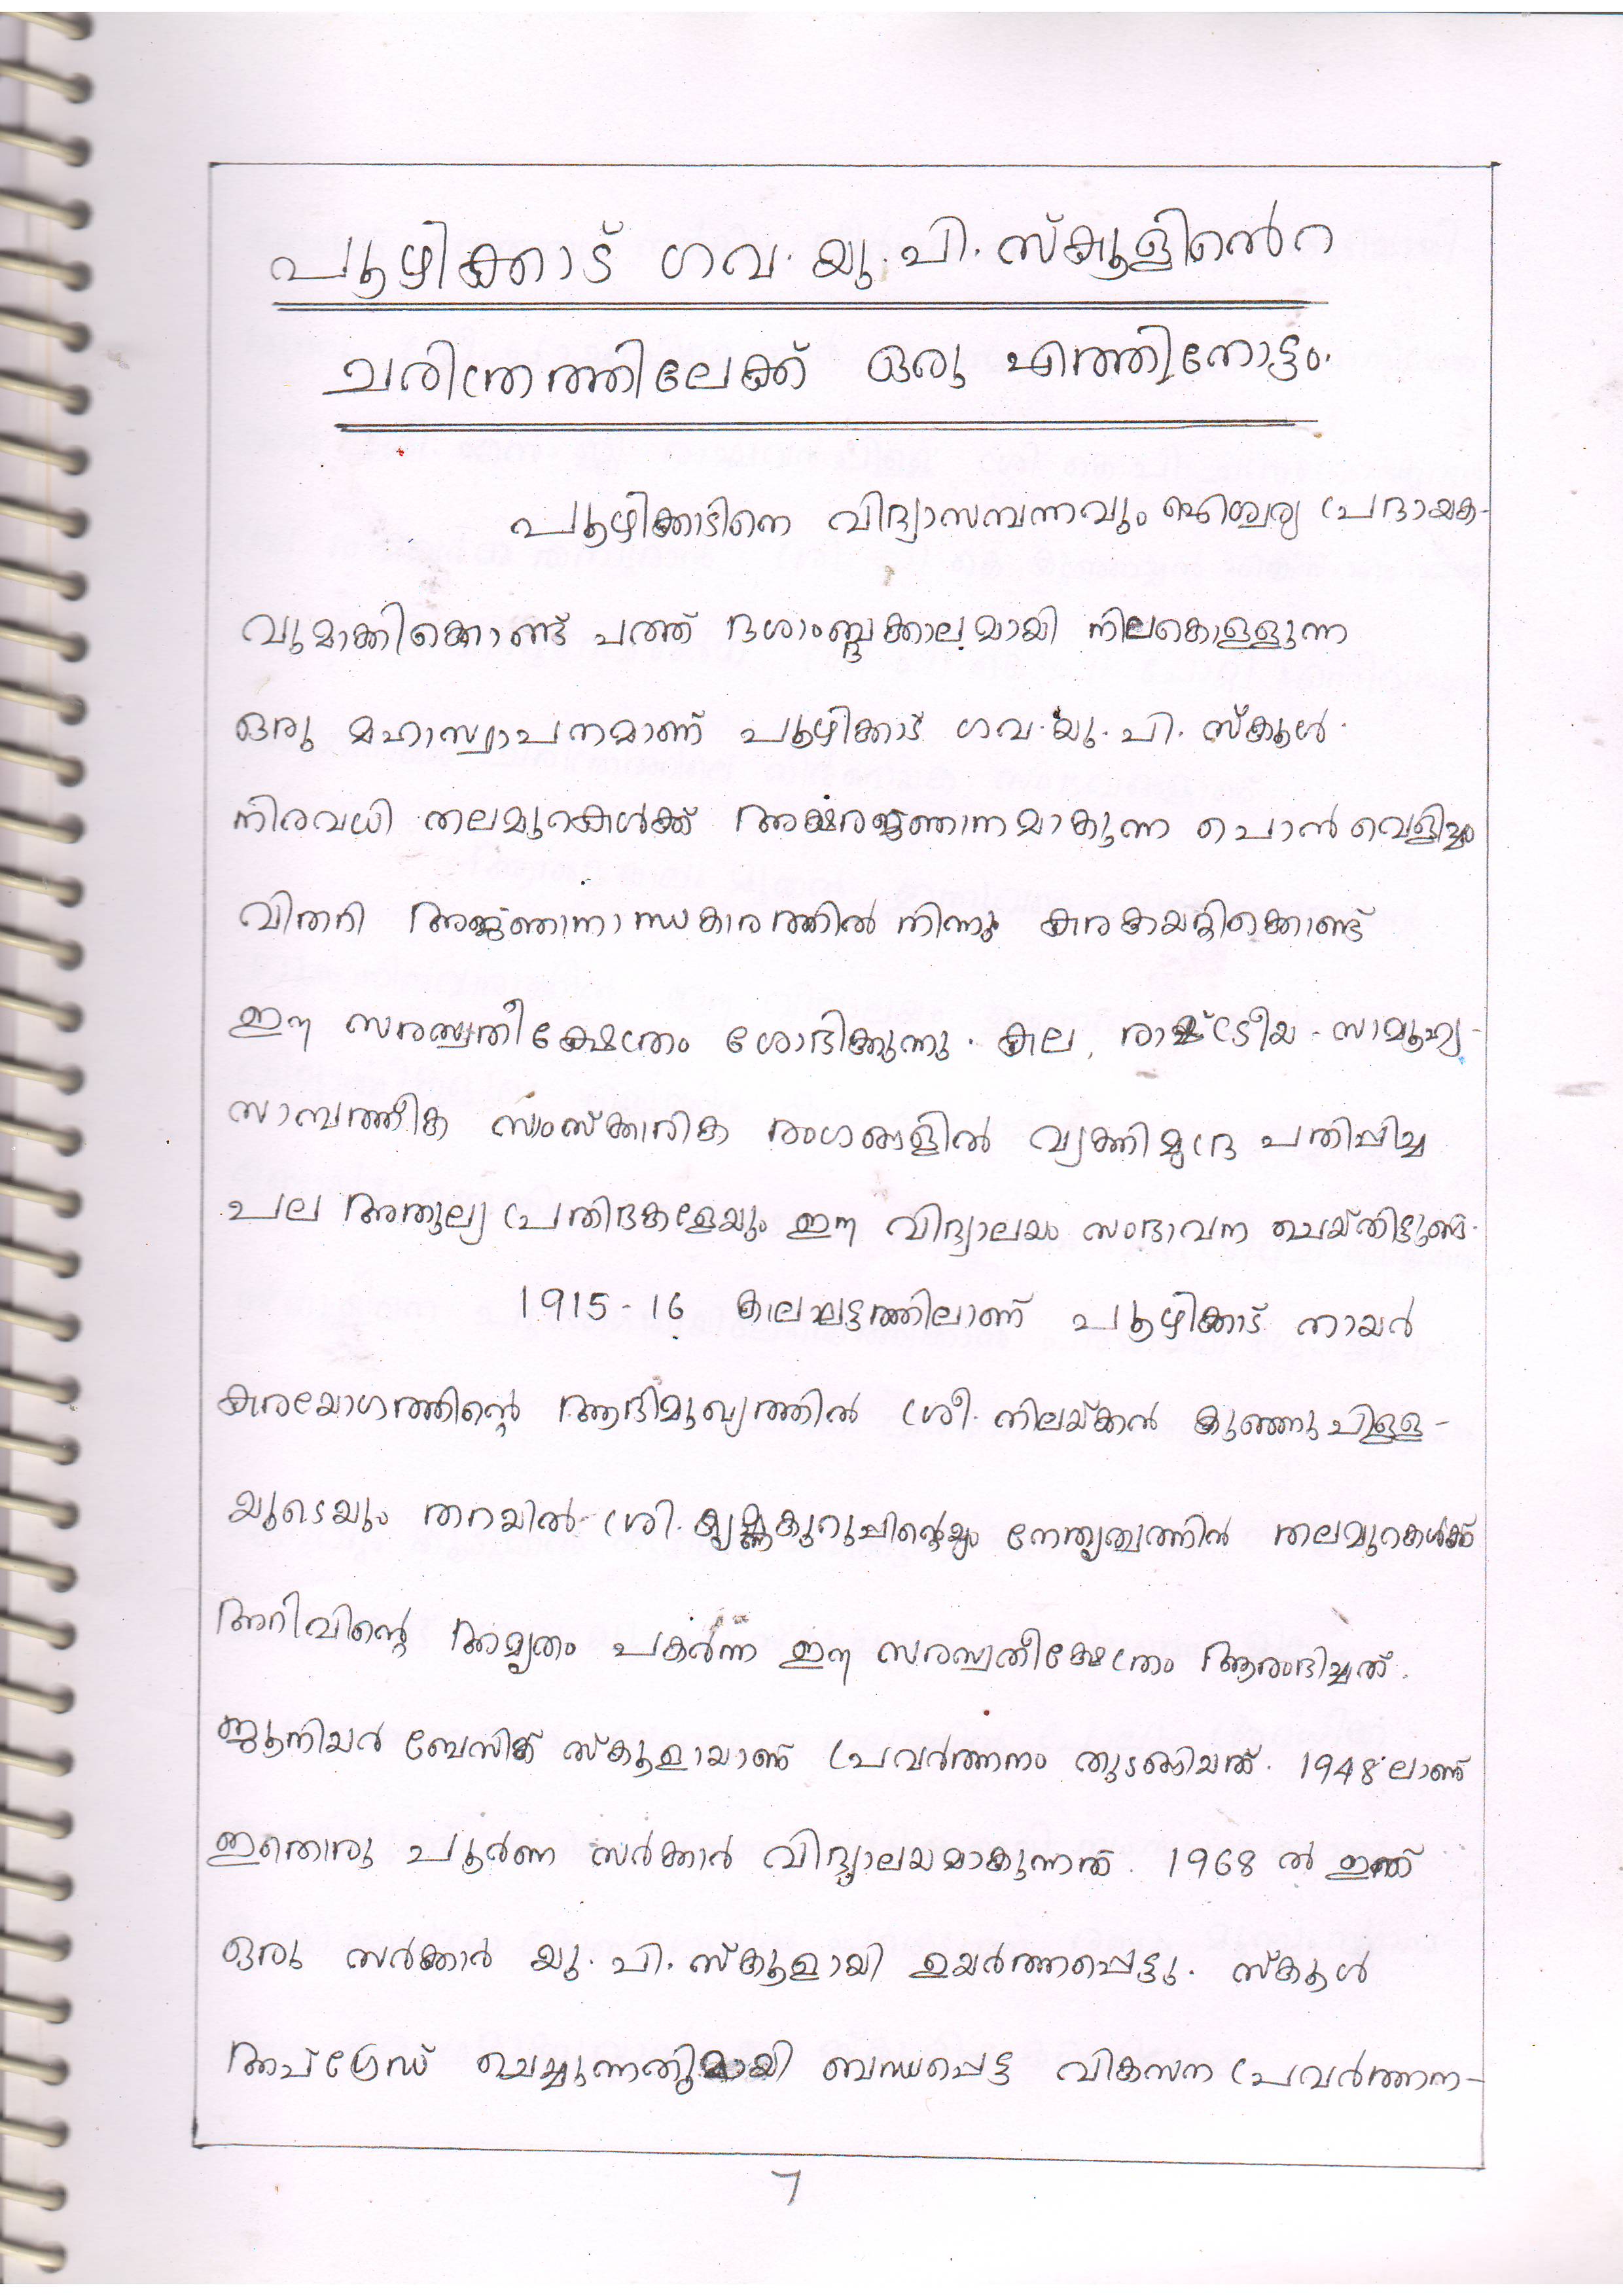 പൂഴിക്കാട് ഗവ. യു. പി. സ്കൂളിൻെറ
ചരിത്രത്തിലേക്ക് ഒരു എത്തിനോട്ടം.
പൂഴിക്കാടിനെ വിദ്യാസമ്പന്നവും ഐശ്വര്യ പ്രദായക-
വുമാക്കിക്കൊണ്ട് പത്ത് ദശാംബ്ദക്കാലമായി നിലകൊള്ളുന്ന
ഒരു മഹാസ്ഥാപനമാണ് പൂഴിക്കാട് ഗവ. യു. പി. സ്കൂൾ.
നിരവധി തലമുറകൾക്ക് അക്ഷരജ്ഞാനമാകുന്ന പൊൻ വെളിച്ചം
വിതറി അജ്ഞാനാന്ധകാരത്തിൽ നിന്നു കരകയറ്റിക്കൊണ്ട്
ഈ സരസ്വതീക്ഷേത്രം ശോഭിക്കുന്നു. കല, രാഷ്ട്രീയ - സാമൂഹ്യ-
സാമ്പത്തീക സാംസ്ക്കാരിക രംഗങ്ങളിൽ വ്യക്തിമുദ്ര പതിപ്പിച്ച
പല അതുല്യ പ്രതിഭകളേയും ഈ വിദ്യാലയം സംഭാവന ചെയ്തിട്ടുണ്ട്.
1915-16 കാലഘട്ടത്തിലാണ് പൂഴിക്കാട് നായർ
കരയോഗത്തിന്റെ ആഭിമുഖ്യത്തിൽ ശ്രീ. നിലയ്ക്കൽ കുഞ്ഞുപിള്ള-
യുടെയും തറയിൽ ശ്രി. കൃഷ്ണകുറുപ്പിന്റെയും നേതൃത്വത്തിൽ തലമുറകൾക്ക്
അറിവിന്റെ അമൃതം പകർന്ന ഈ സരസ്വതീക്ഷേത്രം ആരംഭിച്ചത്.
ജൂനിയർ ബേസിക് സ്കൂളായാണ് പ്രവർത്തനം തുടങ്ങിയത്. 1948 ലാണ്
ഇതൊരു പൂർണ സർക്കാർ വിദ്യാലയമാകുന്നത്. 1968 ൽ ഇത്
ഒരു സർക്കാർ യു. പി. സ്കൂളായി ഉയർത്തപ്പെട്ടു. സ്കൂൾ
അപ്ഗ്രേഡ് ചെയ്യുന്നതുമായി ബന്ധപ്പെട്ട വികസന പ്രവർത്തന-
7